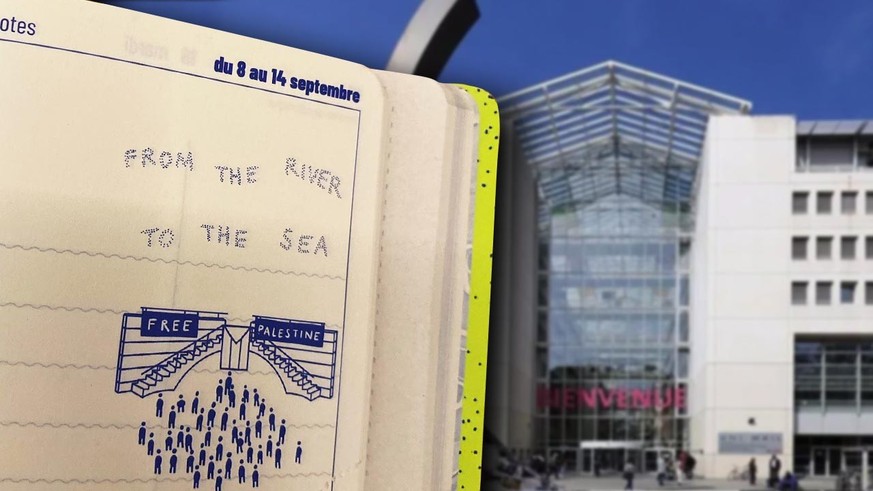 otes
du 8 au 14 septembre
FROM THE RIVER
TO THE SEA
FREE
PALESTINE
BIENVENUE